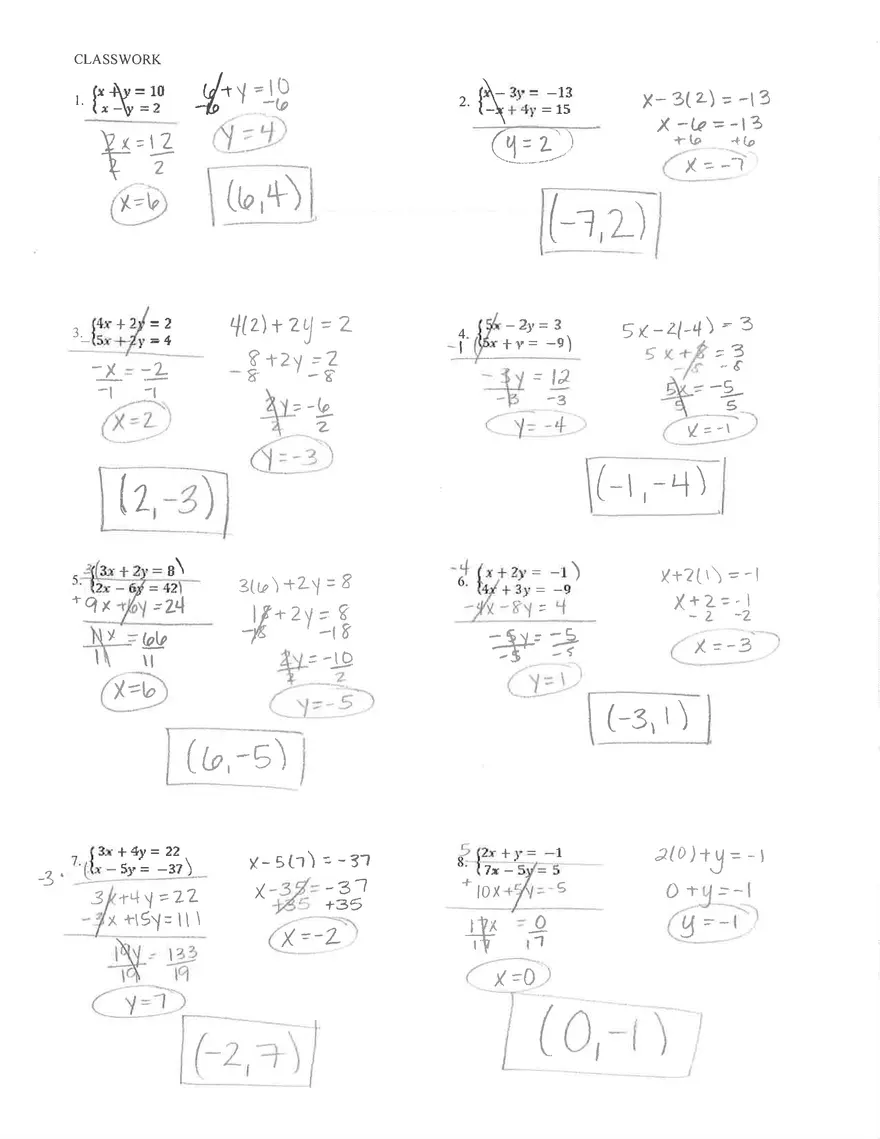 CLASSWORK
1. {x + y = 10
{x − y = 2
2x = 12
2 2
x = 6
6 + y = 10
-6 -6
y = 4
(6, 4)
2. {x − 3y = −13
{−x + 4y = 15
y = 2
x - 3(2) = -13
x - 6 = -13
+6 +6
x = -7
(-7, 2)
3. {4x + 2y = 2
-{5x + 2y = 4
-x = -2
-1 -1
x = 2
4(2) + 2y = 2
8 + 2y = 2
-8 -8
2y = -6
2 2
y = -3
(2, -3)
4. {5x − 2y = 3
-1 ({5x + y = −9)
-3y = 12
-3 -3
y = -4
5x - 2(-4) = 3
5x + 8 = 3
-8 -8
5x = -5
5 5
x = -1
(-1, -4)
5. 3{(3x + 2y = 8)
{2x − 6y = 42)
+ 9x + 6y = 24
11x = 66
11 11
x = 6
3(6) + 2y = 8
18 + 2y = 8
-18 -18
2y = -10
2 2
y = -5
(6, -5)
6. -4 {(x + 2y = −1)
{4x + 3y = −9
-4x - 8y = 4
-5y = -5
-5 -5
y = 1
x + 2(1) = -1
x + 2 = -1
-2 -2
x = -3
(-3, 1)
7. {3x + 4y = 22
-3 · ({x − 5y = −37)
3x + 4y = 22
-3x + 15y = 111
19y = 133
19 19
y = 7
x - 5(7) = -37
x - 35 = -37
+35 +35
x = -2
(-2, 7)
8. 5 {2x + y = −1
{7x − 5y = 5
+ 10x + 5y = -5
17x = 0
17 17
x = 0
2(0) + y = -1
0 + y = -1
y = -1
(0, -1)